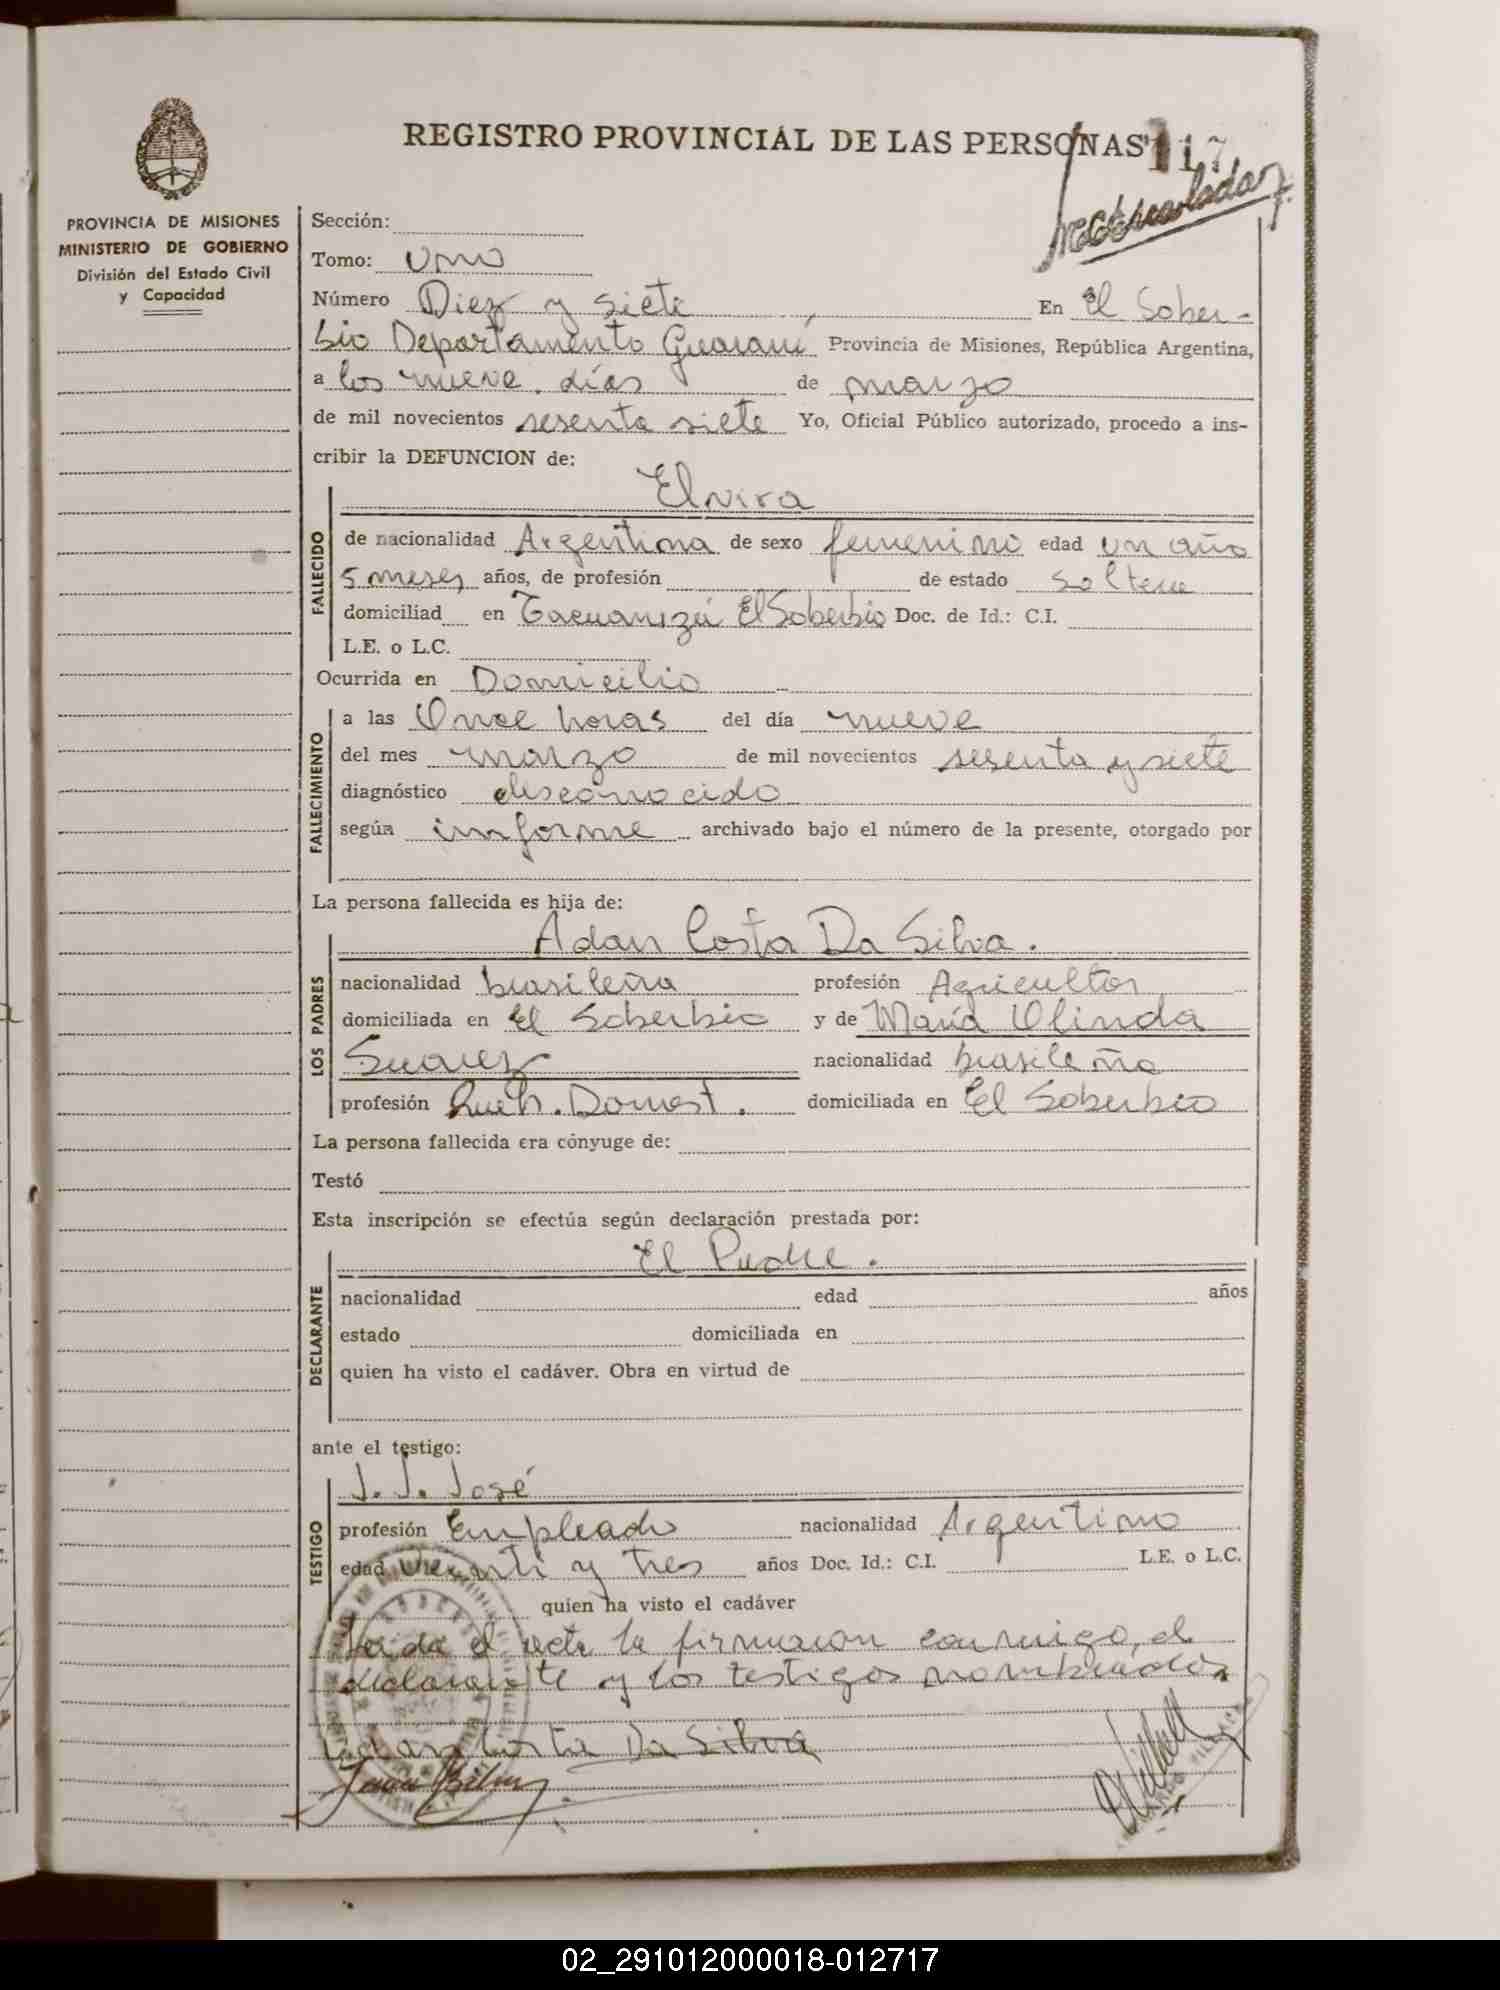 REGISTRO PROVINCIAL DE LAS PERSONAS 117
PROVINCIA DE MISIONES
MINISTERIO DE GOBIERNO
División del Estado Civil
y Capacidad
Sección:
Tomo: Uno
Número Diez y siete, En El Sober-
bio Departamento Guaraní Provincia de Misiones, República Argentina,
a los nueve días de marzo
de mil novecientos sesenta siete Yo, Oficial Público autorizado, procedo a ins-
cribir la DEFUNCION de:
Elvira
FALLECIDO
de nacionalidad Argentina de sexo femenino edad un año
5 meses años, de profesión de estado soltera
domiciliad en Tacuaruzú El Soberbio Doc. de Id.: C.I.
L.E. o L.C.
Ocurrida en Domicilio
FALLECIMIENTO
a las Once horas del día nueve
del mes marzo de mil novecientos sesenta y siete
diagnóstico desconocido
según informe archivado bajo el número de la presente, otorgado por
La persona fallecida es hija de:
LOS PADRES
Adan Costa Da Silva.
nacionalidad brasileña profesión Agricultor
domiciliada en El Soberbio y de María Olinda
Suarez nacionalidad brasileña
profesión Queh. Domest. domiciliada en El Soberbio
La persona fallecida era cónyuge de:
Testó
Esta inscripción se efectúa según declaración prestada por:
DECLARANTE
El Padre.
nacionalidad edad años
estado domiciliada en
quien ha visto el cadáver. Obra en virtud de
ante el testigo:
TESTIGO
J. J. José
profesión Empleado nacionalidad Argentino
edad veinti y tres años Doc. Id.: C.I. L.E. o L.C.
quien ha visto el cadáver
Leida el acta la firmaron conmigo, el
declarante y los testigos nombrados
Adan Costa Da Silva
02_291012000018-012717